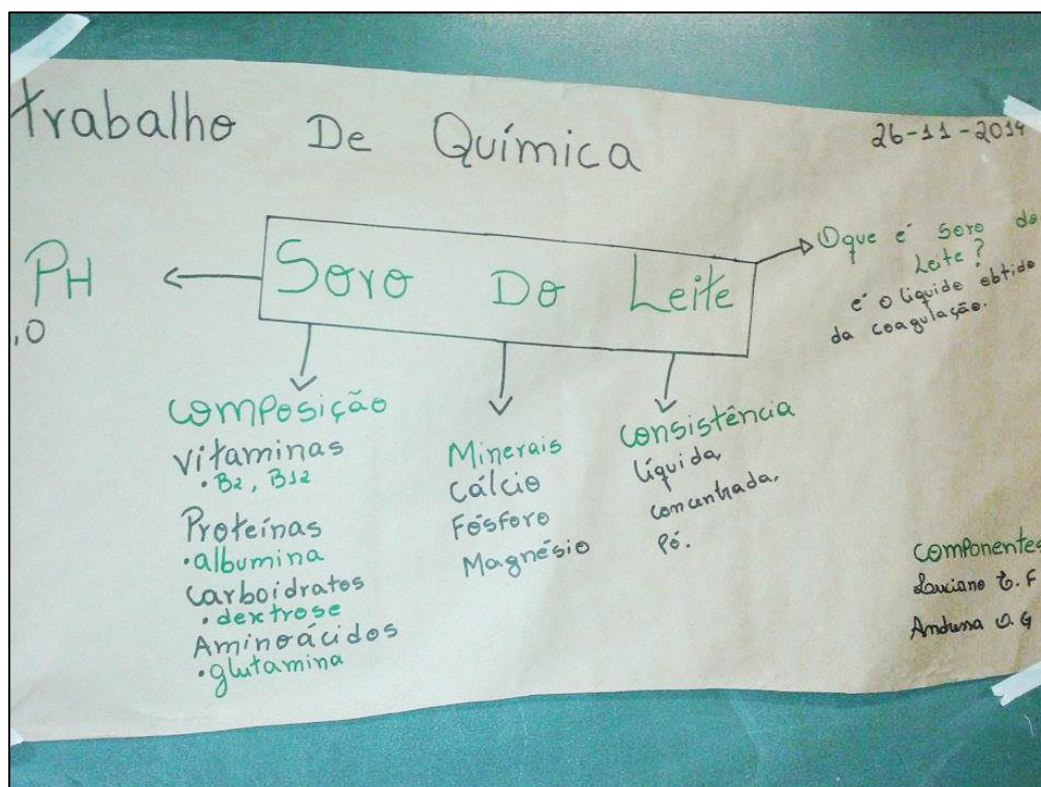 trabalho De Química
26-11-2014
Soro Do Leite
PH
,0
O que é Soro do
Leite?
é o líquido obtido
da coagulação.
composição
vitaminas
•B2, B12
Proteínas
•albumina
carboidratos
•dextrose
Aminoácidos
•glutamina
Minerais
cálcio
Fósforo
Magnésio
consistência
líquida,
concentrada,
Pó.
componentes
Luciano E. F
Andressa O. G